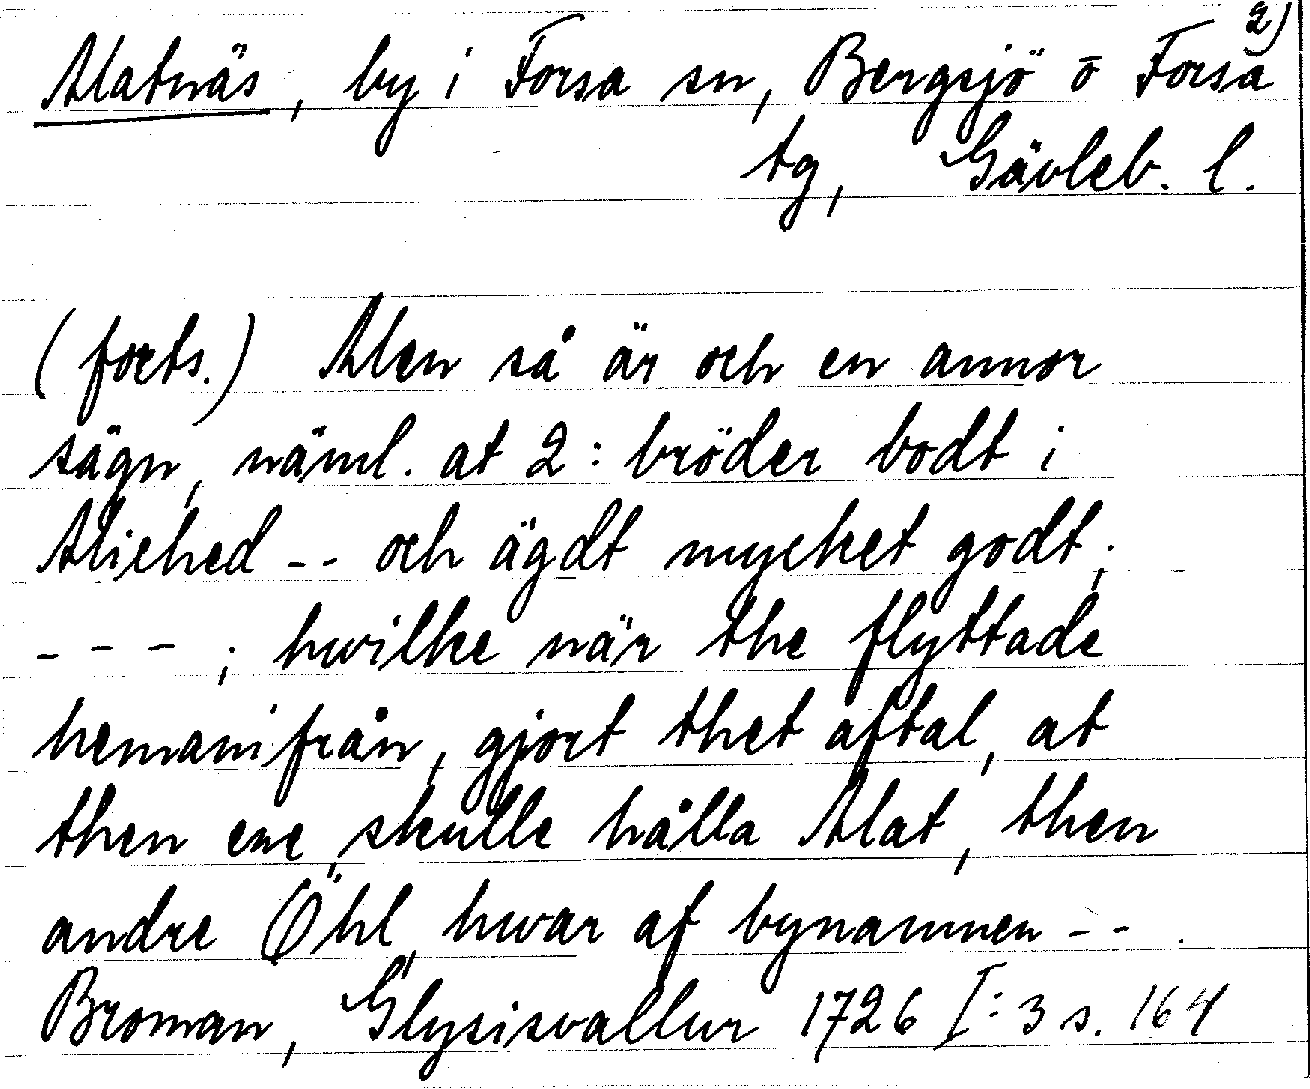 2)
Matnäs, by i Forsa sn, Bergsjö o Forsa
tg, Gävleb. l.
(forts.) Men så är och en annor
sägn, näml. at 2: bröder bodt i
Miehed -- och ägdt mycket godt;
- - - ; hwilke när the flyttade
hemanifrån, gjort thet aftal, at
then ene, skulle hålla Mat, then
andre Öhl, hwar af bynamnen -- .
Broman, Glysisvallur 1726 I:3 s. 164